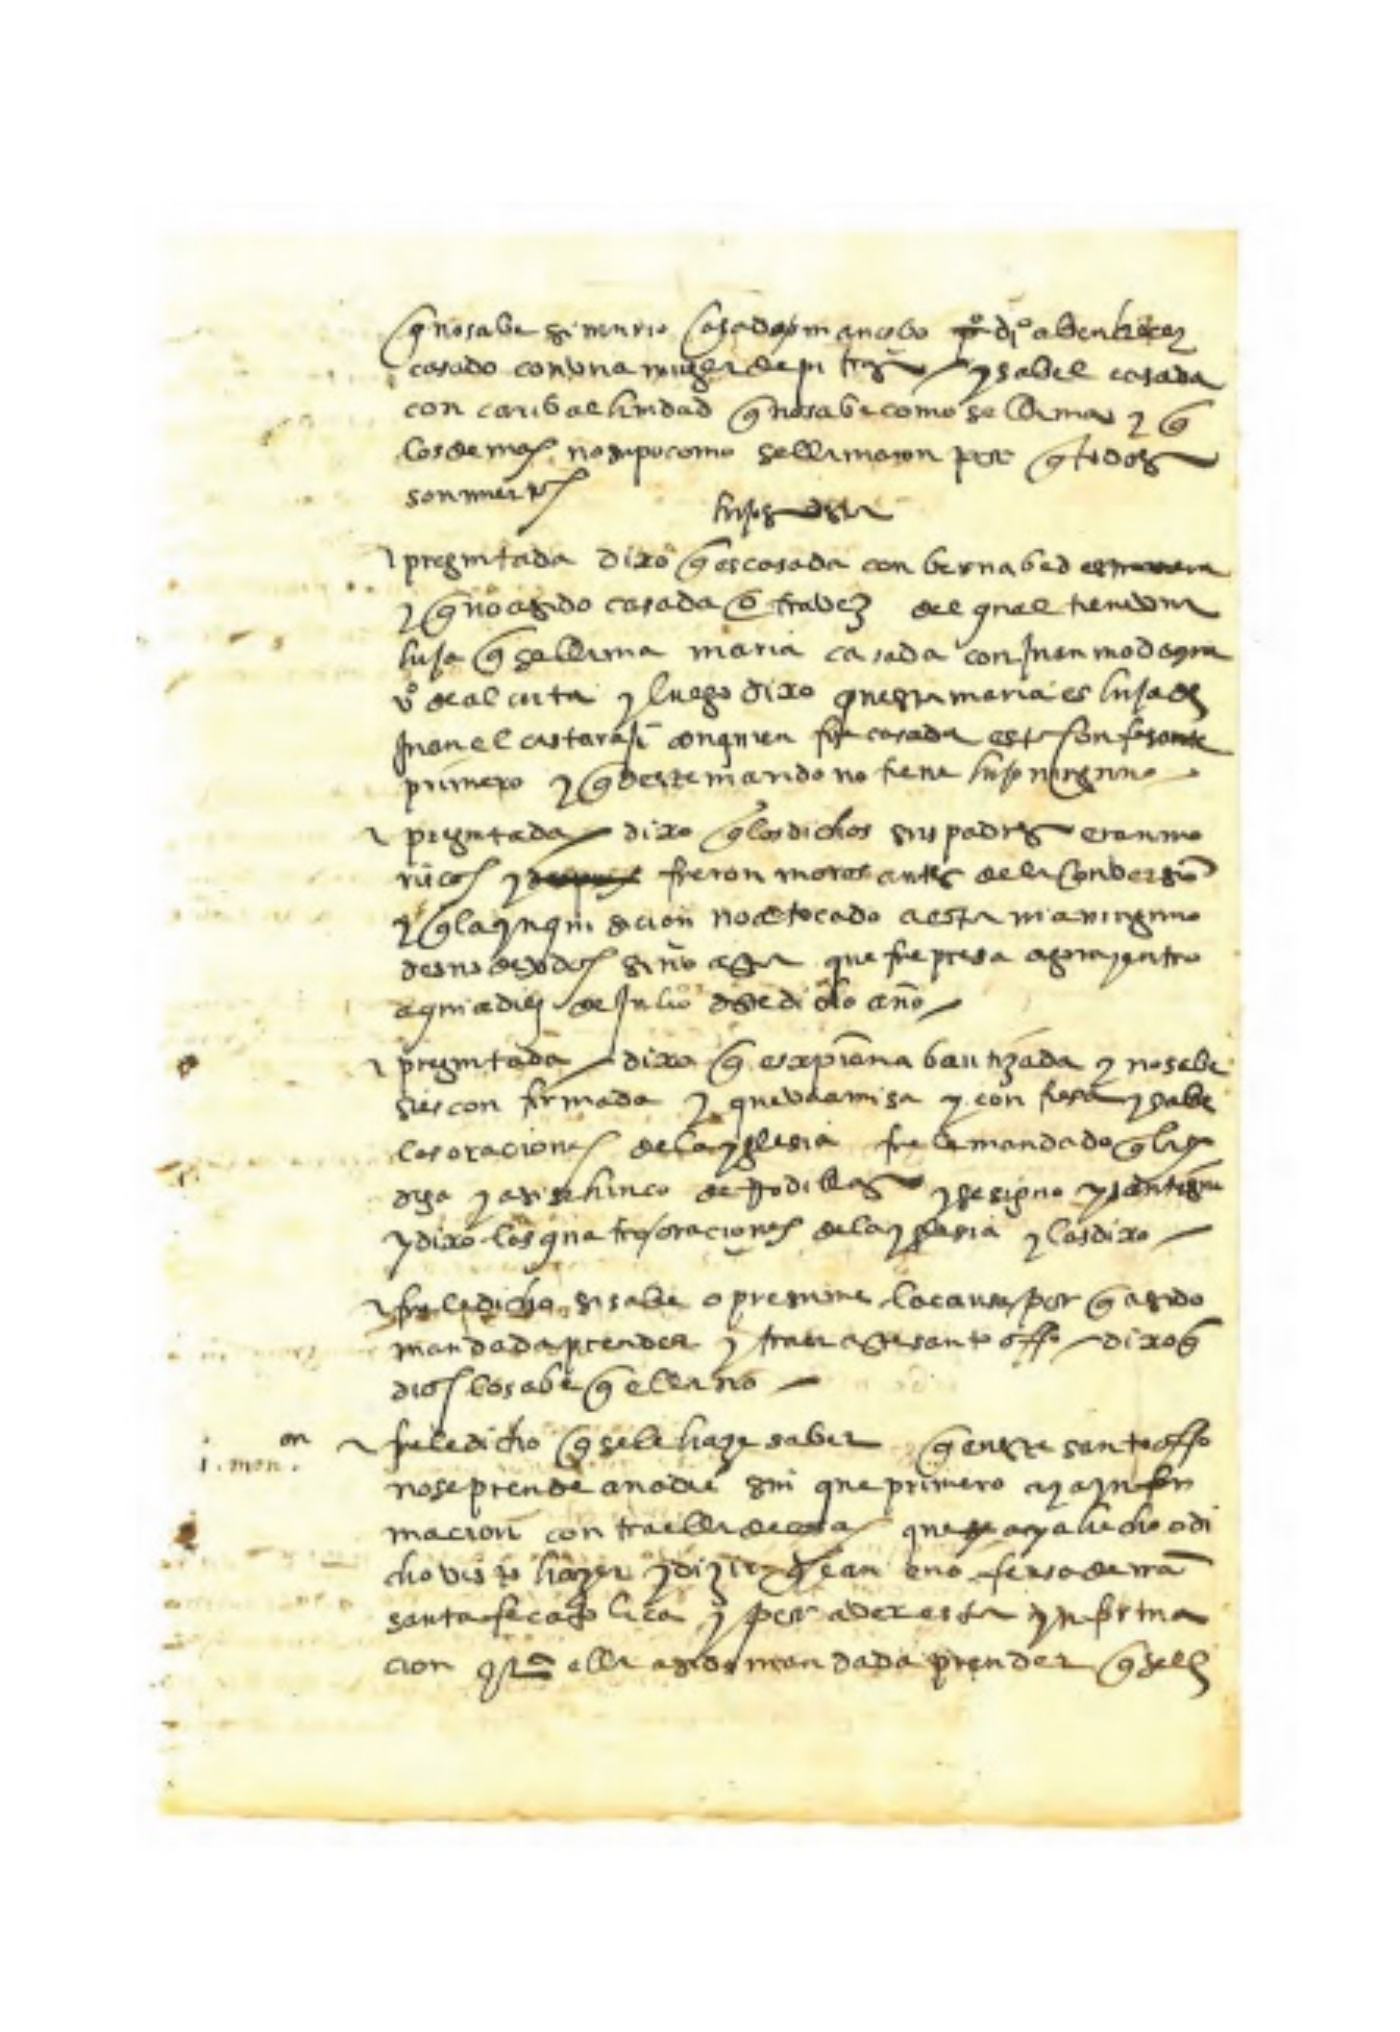 q no sabe si murio casado o mancebo di° aben
casado con una muger de ysabel casada
con q no sabe como se llama y q
los demas no supo como se llamaron por q todos
son muertos
hijos desta
pregutada dixo q es casada con bernabe
y q no a sido casada otra vez del qual tiene una
hija q se llama maria casada con Juan
v° de y luego dixo questa maria es hija de
Juan el con quien fue casada esta
primero y q deste marido no tiene hijo ninguno
pregutada dixo q los dichos sus padres eran mo
riscos y fueron moros antes de la conversion
y q la ynquisicion no a tocado a esta ni a ninguno
de sus deudos sino a esta que fue presa agora y entro
aqui a diez de Julio deste dicho año
pregutada dixo q es xpiana bautizada y no sabe
si es con firmada y que va a misa y confiesa y sabe
las oraciones de la yglesia fuele mandado q las
diga y ansi se hinco de Rodillas y se signo y santiguo
y dixo las quatro oraciones de la yglesia y las dixo
fuele dicho si sabe o presume la causa por q a sido
mandada prender y traer a este santo offo dixo q
dios lo sabe q ella no
1. mon.on
fuele dicho q se le haze saber q en este santo offo
no se prende a nadie sin que primero aya ynfor
macion contra ella de cosas que aya hecho o di
cho visto hazer y dizir q sean en ofensa de nra
santa fe catolica y por aver esta ynforma
cion ella a sido mandada prender q se le